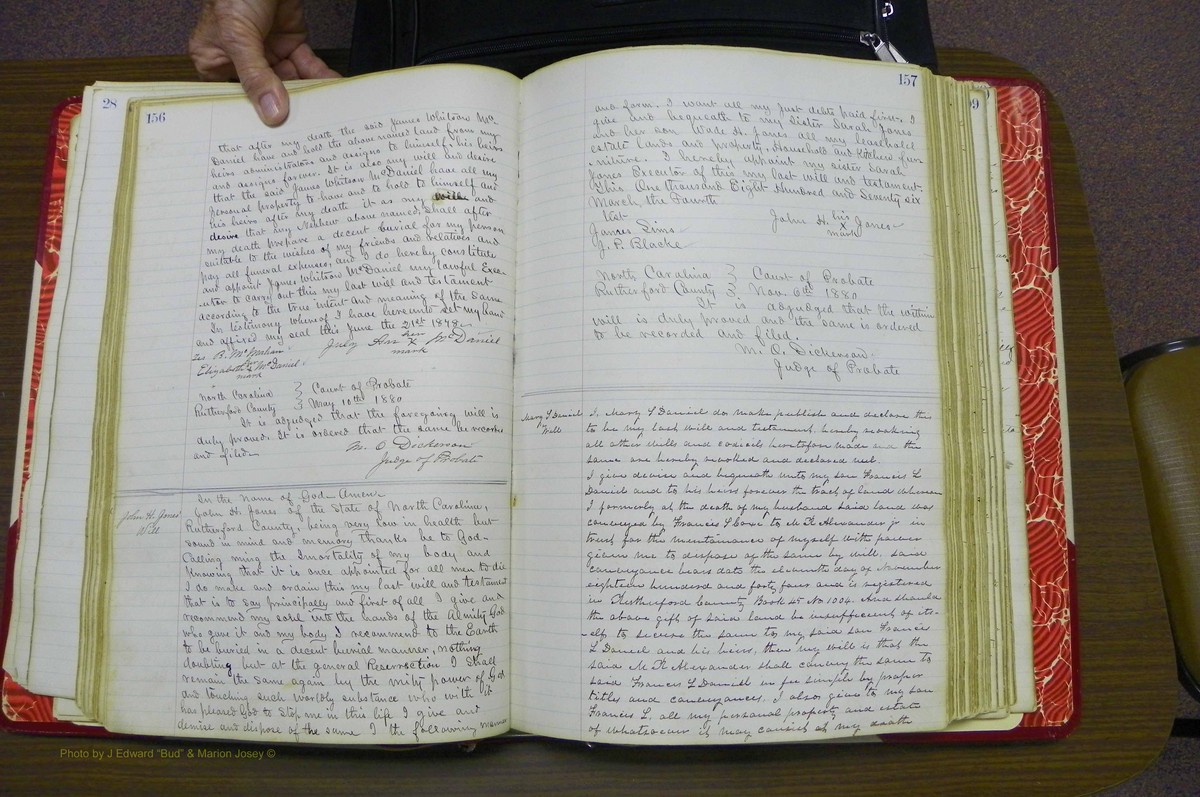 28
156
that after my death the said James Whitson Mc
Daniel have and hold the above named land from my
heirs administrators and assigns to himself his heirs
and assigns forever. It is also my will and desire
that the said James Whitson McDaniel have all my
personal property to have and to hold to himself and
his heirs after my death it as my will and
desire that my Nephew above named, shall after
my death prepare a decent burial for my person
suitable to the wishes of my friends and relatives and
pay all funeral expenses, and I do hereby constitute
and appoint James Whitson McDaniel my lawful Exec-
utor to carry out this my last will and testament
according to the true intent and meaning of the same
In testimony whereof I have hereunto set my hand
and affixed my seal this June the 21st 1878
her
July Ann X McDaniel
mark
Elizabeth X McDaniel
mark
North Carolina } Court of Probate
Rutherford County } May 10th 1880
It is adjudged that the foregoing will is
duly proved. It is ordered that the same be recorded
and filed
M. O. Dickerson
Judge of Probate
John H. Jones
Will
In the name of God Amen
John H. Jones of the State of North Carolina,
Rutherford County, being very low in health but
sound in mind and memory thanks be to God-
Calling ming the Imortality of my body and
Knowing that it is once appointed for all men to die
I do make and ordain this my last will and testament
that is to say principally and first of all I give and
recommend my soul into the hands of the Almity God
who gave it and my body I recommend to the Earth
to be buried in a decent burial manner, nothing
doubting but at the general Resurrection I shall
remain the same again by the mity power of God
and touching such worldly substance who with it
has pleased God to in this life I give and
demise and dispose of the same I the following manner
157
99
and form. I want all my just debts paid first. I
give and bequeath to my sister Sarah Jones
and her son Wade H. Jones all my leasehold
estate lands and property, Household and Kitchen fur-
niture. I hereby appoint my sister Sarah
Jones Executor of this my last will and testament.
This One thousand Eight Hundred and Seventy six
March, the Fourth
John H. his Jones
X
mark
Test
James Sims
J. P. Blacke
North Carolina } Court of Probate
Rutherford County } Nov. 6th 1880
It is adjudged that the within
will is duly proved and the same is ordered
to be recorded and filed.
M. O. Dickerson
Judge of Probate
Mary L Daniel
Will
I, Mary L Daniel do make publish and declare this
to be my last will and testament, hereby revoking
all other wills and codicils heretofore made and the
same are hereby revoked and declared null.
I give devise and bequeath unto my son Francis L
Daniel and to his heirs forever the tract of land whereon
I formerly at the death of my husband said land was
conveyed by Francis L to M. R. Alexander jr in
trust for the maintainance of myself with power
given me to dispose of the same by will. said
conveyance bears date the eleventh day of November
eighteen hundred and forty four and is registered
in Rutherford County Book 45 No 1004. And should
the above gift of said land be insufficient of its-
elf to secure the same to my said son Francis
L Daniel and his heirs, then my will is that the
said M. R. Alexander shall convey the same to
said Francis L Daniel in fee simple by proper
titles and conveyances. I also give to my son
Francis L. all my personal property and estate
of whatsoever it may consist at my death
Photo by J Edward "Bud" & Marion Josey ©